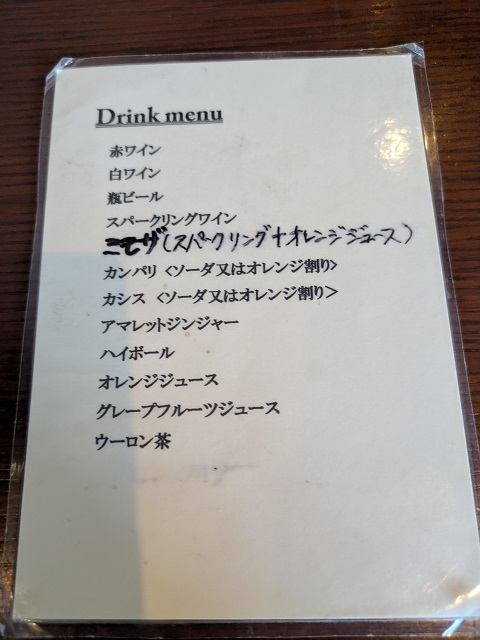 Drink menu
赤ワイン
白ワイン
瓶ビール
スパークリングワイン
ミモザ(スパークリング+オレンジジュース)
カンパリ <ソーダ又はオレンジ割り>
カシス <ソーダ又はオレンジ割り>
アマレットジンジャー
ハイボール
オレンジジュース
グレープフルーツジュース
ウーロン茶